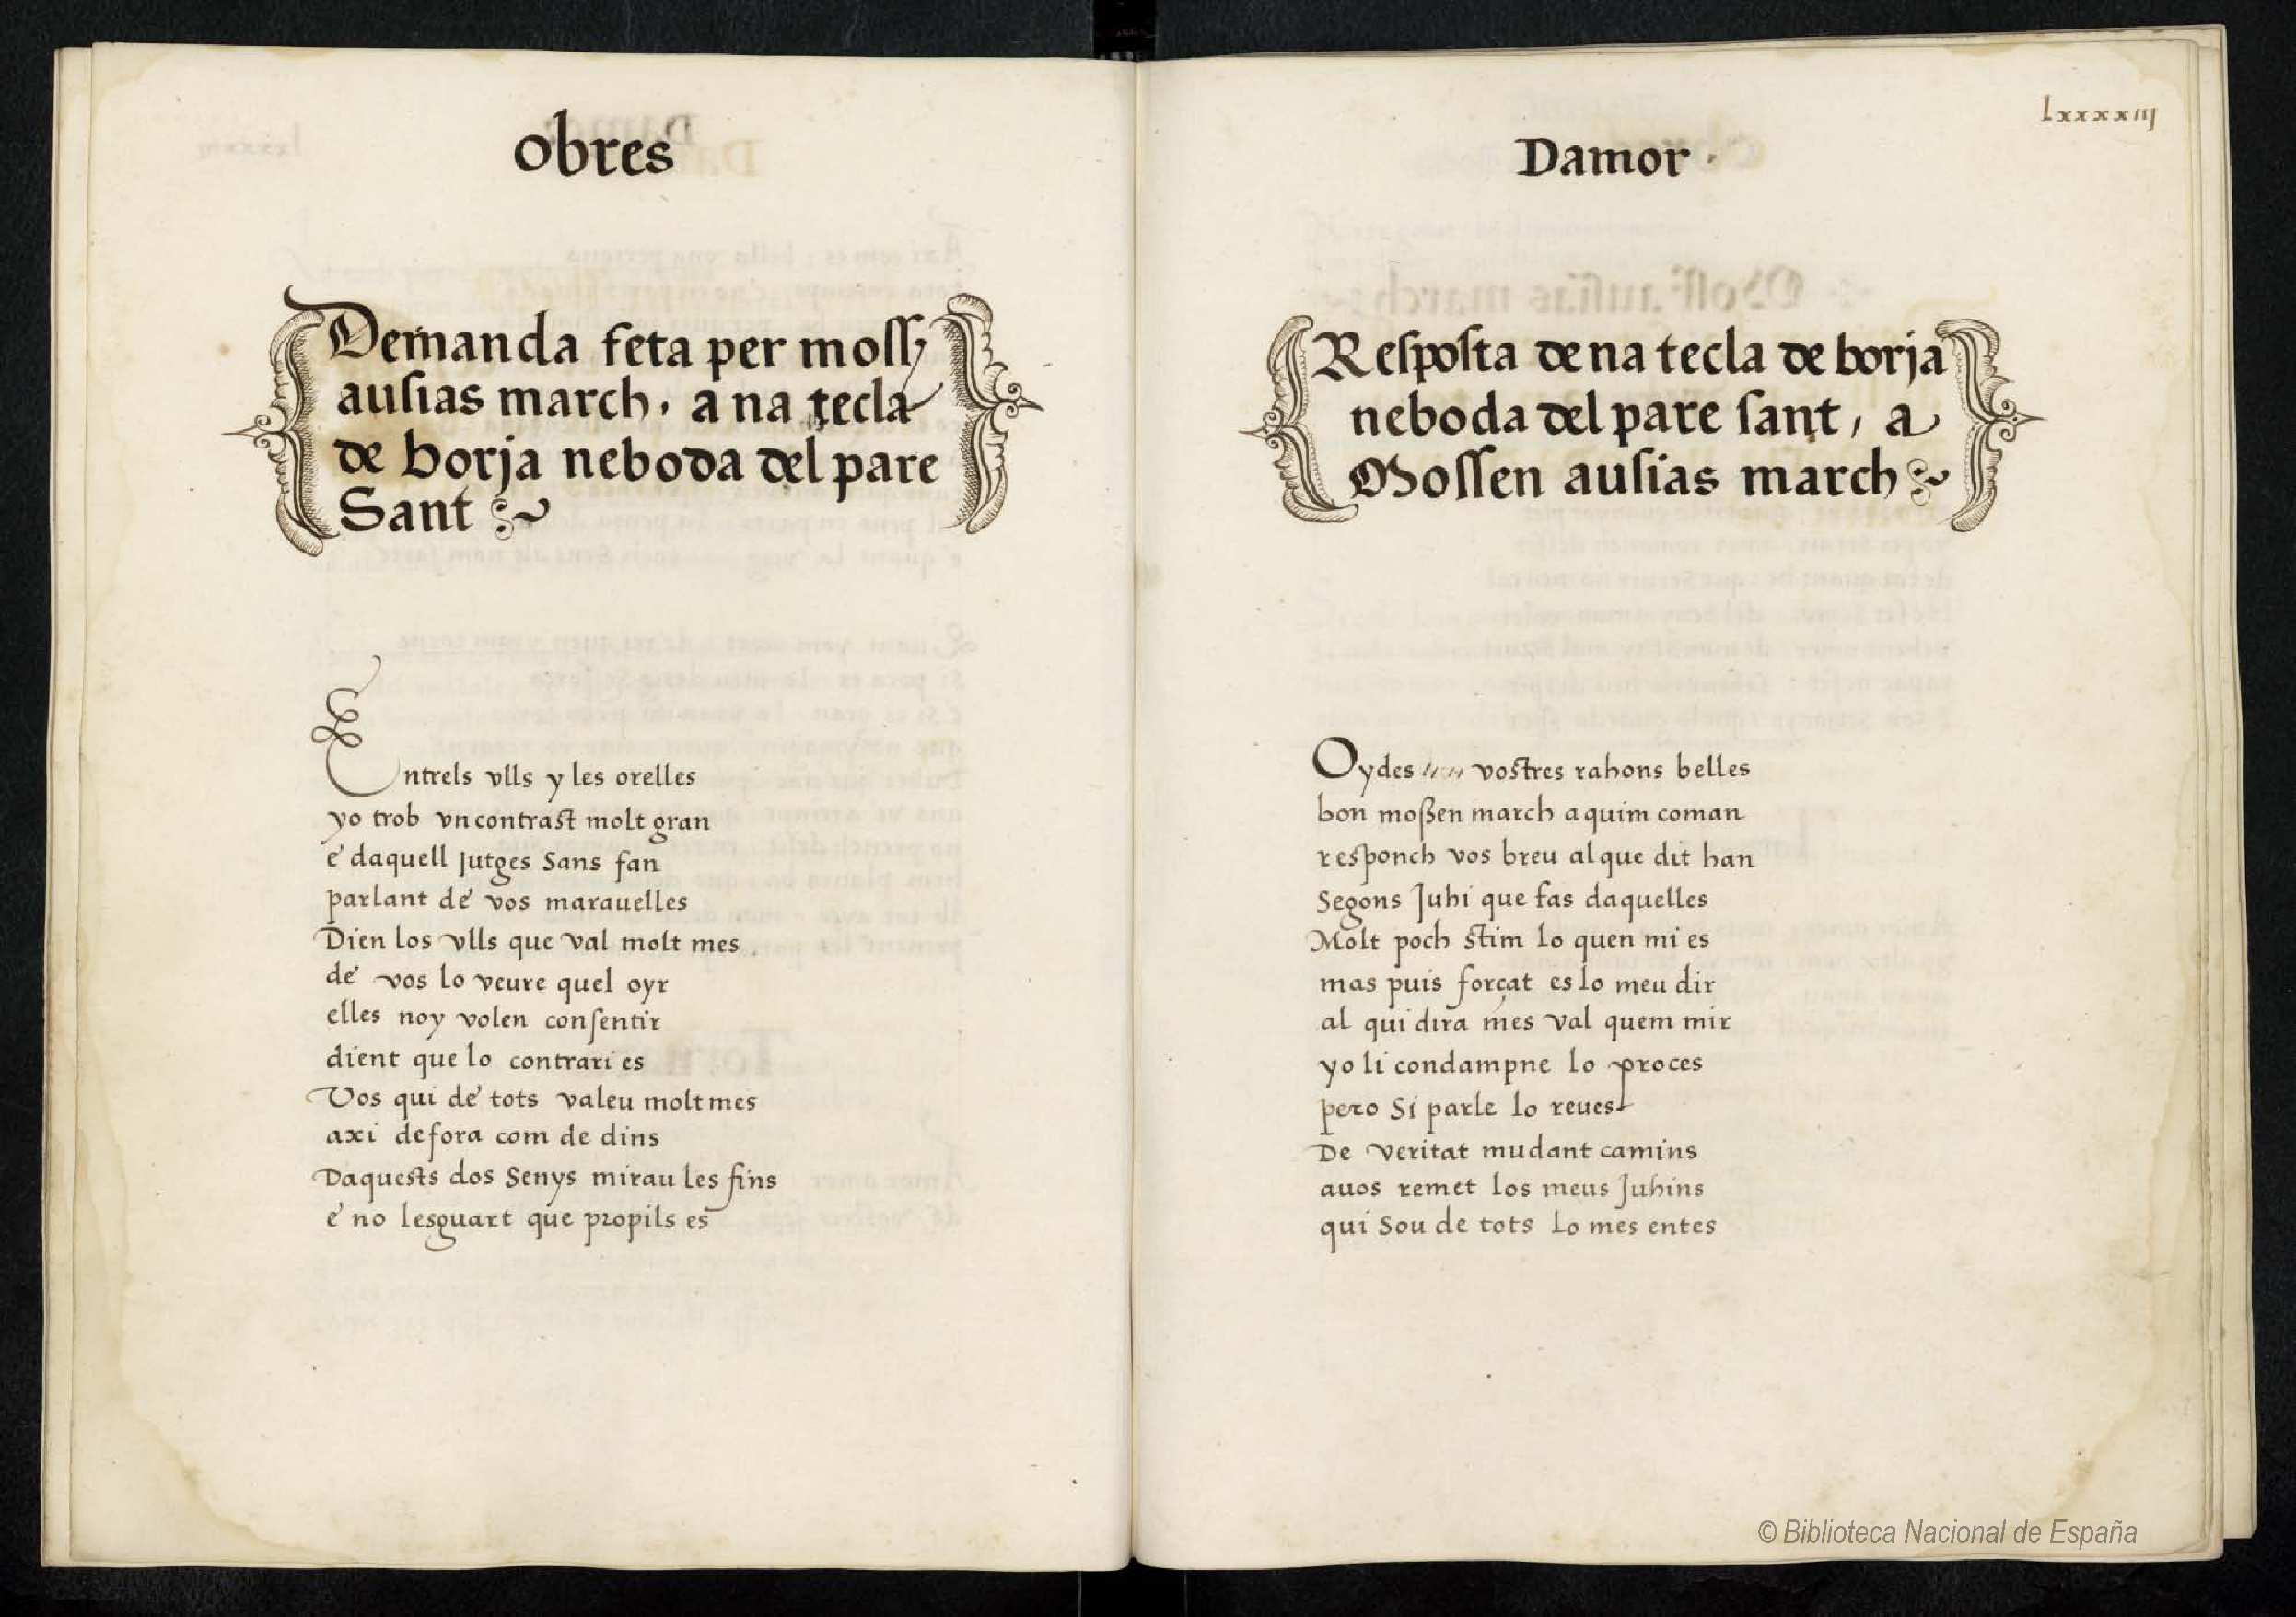 obres
Demanda feta per moss
ausias march, a na tecla
de borja neboda del pare
Sant
Entrels vlls y les orelles
yo trob vn contrast molt gran
e daquell Jutges Sans fan
parlant de vos marauelles
Dien los vlls que val molt mes
de vos lo veure quel oyr
elles noy volen consentir
dient que lo contrari es
Vos qui de tots valeu molt mes
axi defora com de dins
Daquests dos Senys mirau les fins
e no lesguart que propils es
lxxxxiij
Damor
Resposta de na tecla de borja
neboda del pare sant, a
Mossen ausias march
Oydes vostres rahons belles
bon moßen march aquim coman
responch vos breu al que dit han
Segons Juhi que fas daquelles
Molt poch stim lo quen mi es
mas puis forçat es lo meu dir
al qui dira mes val quem mir
yo li condampne lo proces
pero Si parle lo reues
De veritat mudant camins
auos remet los meus Juhins
qui Sou de tots lo mes entes
© Biblioteca Nacional de España